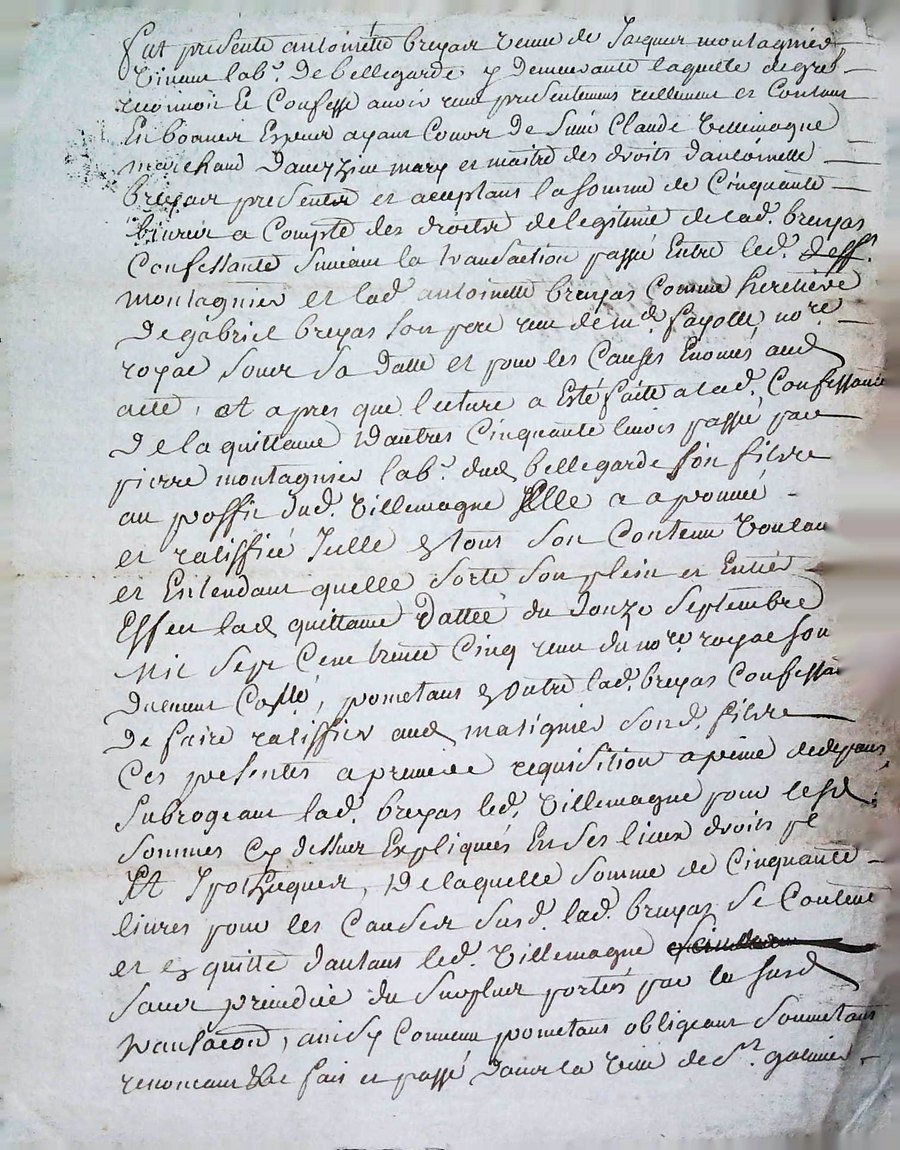 fut presente antoinette breyas veuve de Jacques montagnier,
vivant lab.r de bellegarde y demeurante laquelle de gré
reconnoit et Confesse avoir reçu presentement reellement et Contant
En bonnes Especes ayant Cours de Sieur Claude Villemagne
marchand mary et maitre des droits dantoinette
breyas presentes et aceptans la Somme de Cinquante
Livres a Compte des droits de legitime de lad. breyas
Confessante Suivant la transaction passé Entre led. deff.t
montagnier et lad antoinette breyas Comme heritiere
De gabriel breyas Son pere reçu de m.d fayolle no.re
royal Sous Sa datte et pour les Causes Enoncés aud
acte, et apres que lecture a Eté faite a lad. Confessante
De la quittance dautres Cinquante livres passé par
pierre montagnier lab.r dud bellegarde Son filvre
au proffit dud. Villemagne Elle a aprouvé
et ratiffié Icelle & tout Son Contenu Voulant
et Entendant quelle Sorte Son plein et Entier
Effet lad quittance dattée du douze Septembre
Mil Sept Cent trente Cinq reçu du no.re royal Son
Duement Collé, prometant & Outre lad. breyas Confessan
De faire ratiffier aud matignier Sond. filvre
Ces presentes a premiere requisition a peine de depans,
Subrogeant lad. breyas led. Villemagne pour lesd.
Sommes Cy dessus Expliqués En Ses lieux droits pl
Et Ipotheques, De laquelle Somme de Cinquante
livres pour les Causes Susd. lad. breyas Se Contente
et En quitte dautant led. Villemagne
Sans prejudice du Surplus portés par la Susd
transaction, ainsy Convenu prometant obligeant Soumetant
renonceant &c fait et passé dans la Ville de S.t galmier